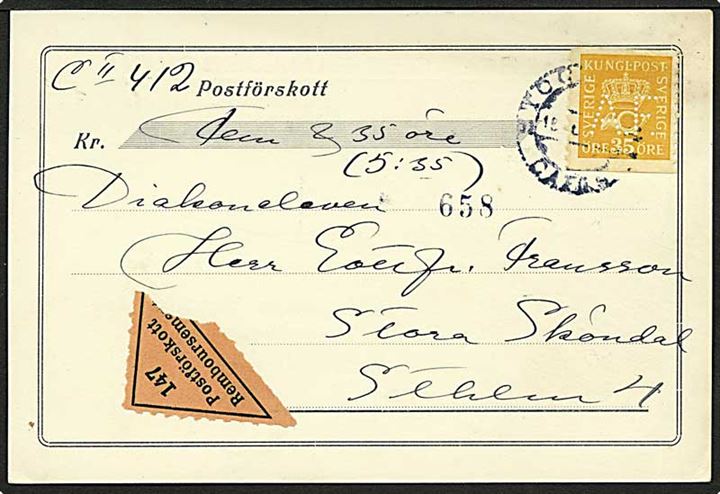 C II 412 Postförskott
Kr. Fem & 35 öre
(5:35)
Diakoneleven 658
Herr Fransson
Stora Sköndal
Sthlm 4
KUNGL. POST
SVERIGE
SVERIGE
ÖRE 35 ÖRE
147
Postförskott